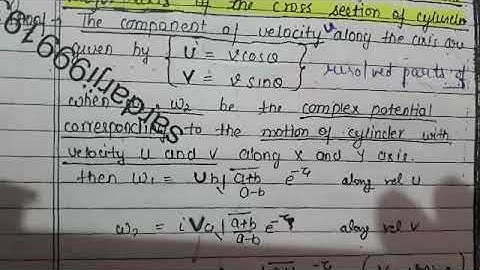 major axis of the cross section of cylinder
Proof → The component of velocity v along the axis are
given by { U = v cosθ
V = v sinθ } resolved parts of
when w₂ be the complex potential
corresponding to the motion of cylinder with
velocity U and V along X and Y axis.
then ω₁ = U b √a+b/a-b e^-ζ along vel U
ω₂ = i V a √a+b/a-b e^-ζ along vel V
sardarji99919